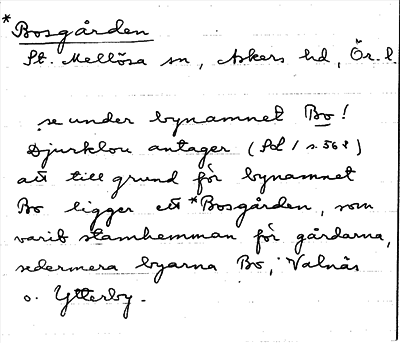 *Bosgården
St. Mellösa sn, Askers hd, Ör. l.
se under bynamnet Bo!
Djurklou antager (Sd 1 s. 562)
att till grund för bynamnet
Bo ligger ett *Bosgården, som
varit stamhemman för gårdarna,
sedermera byarna Bo, Valnäs
o. Ytterby.